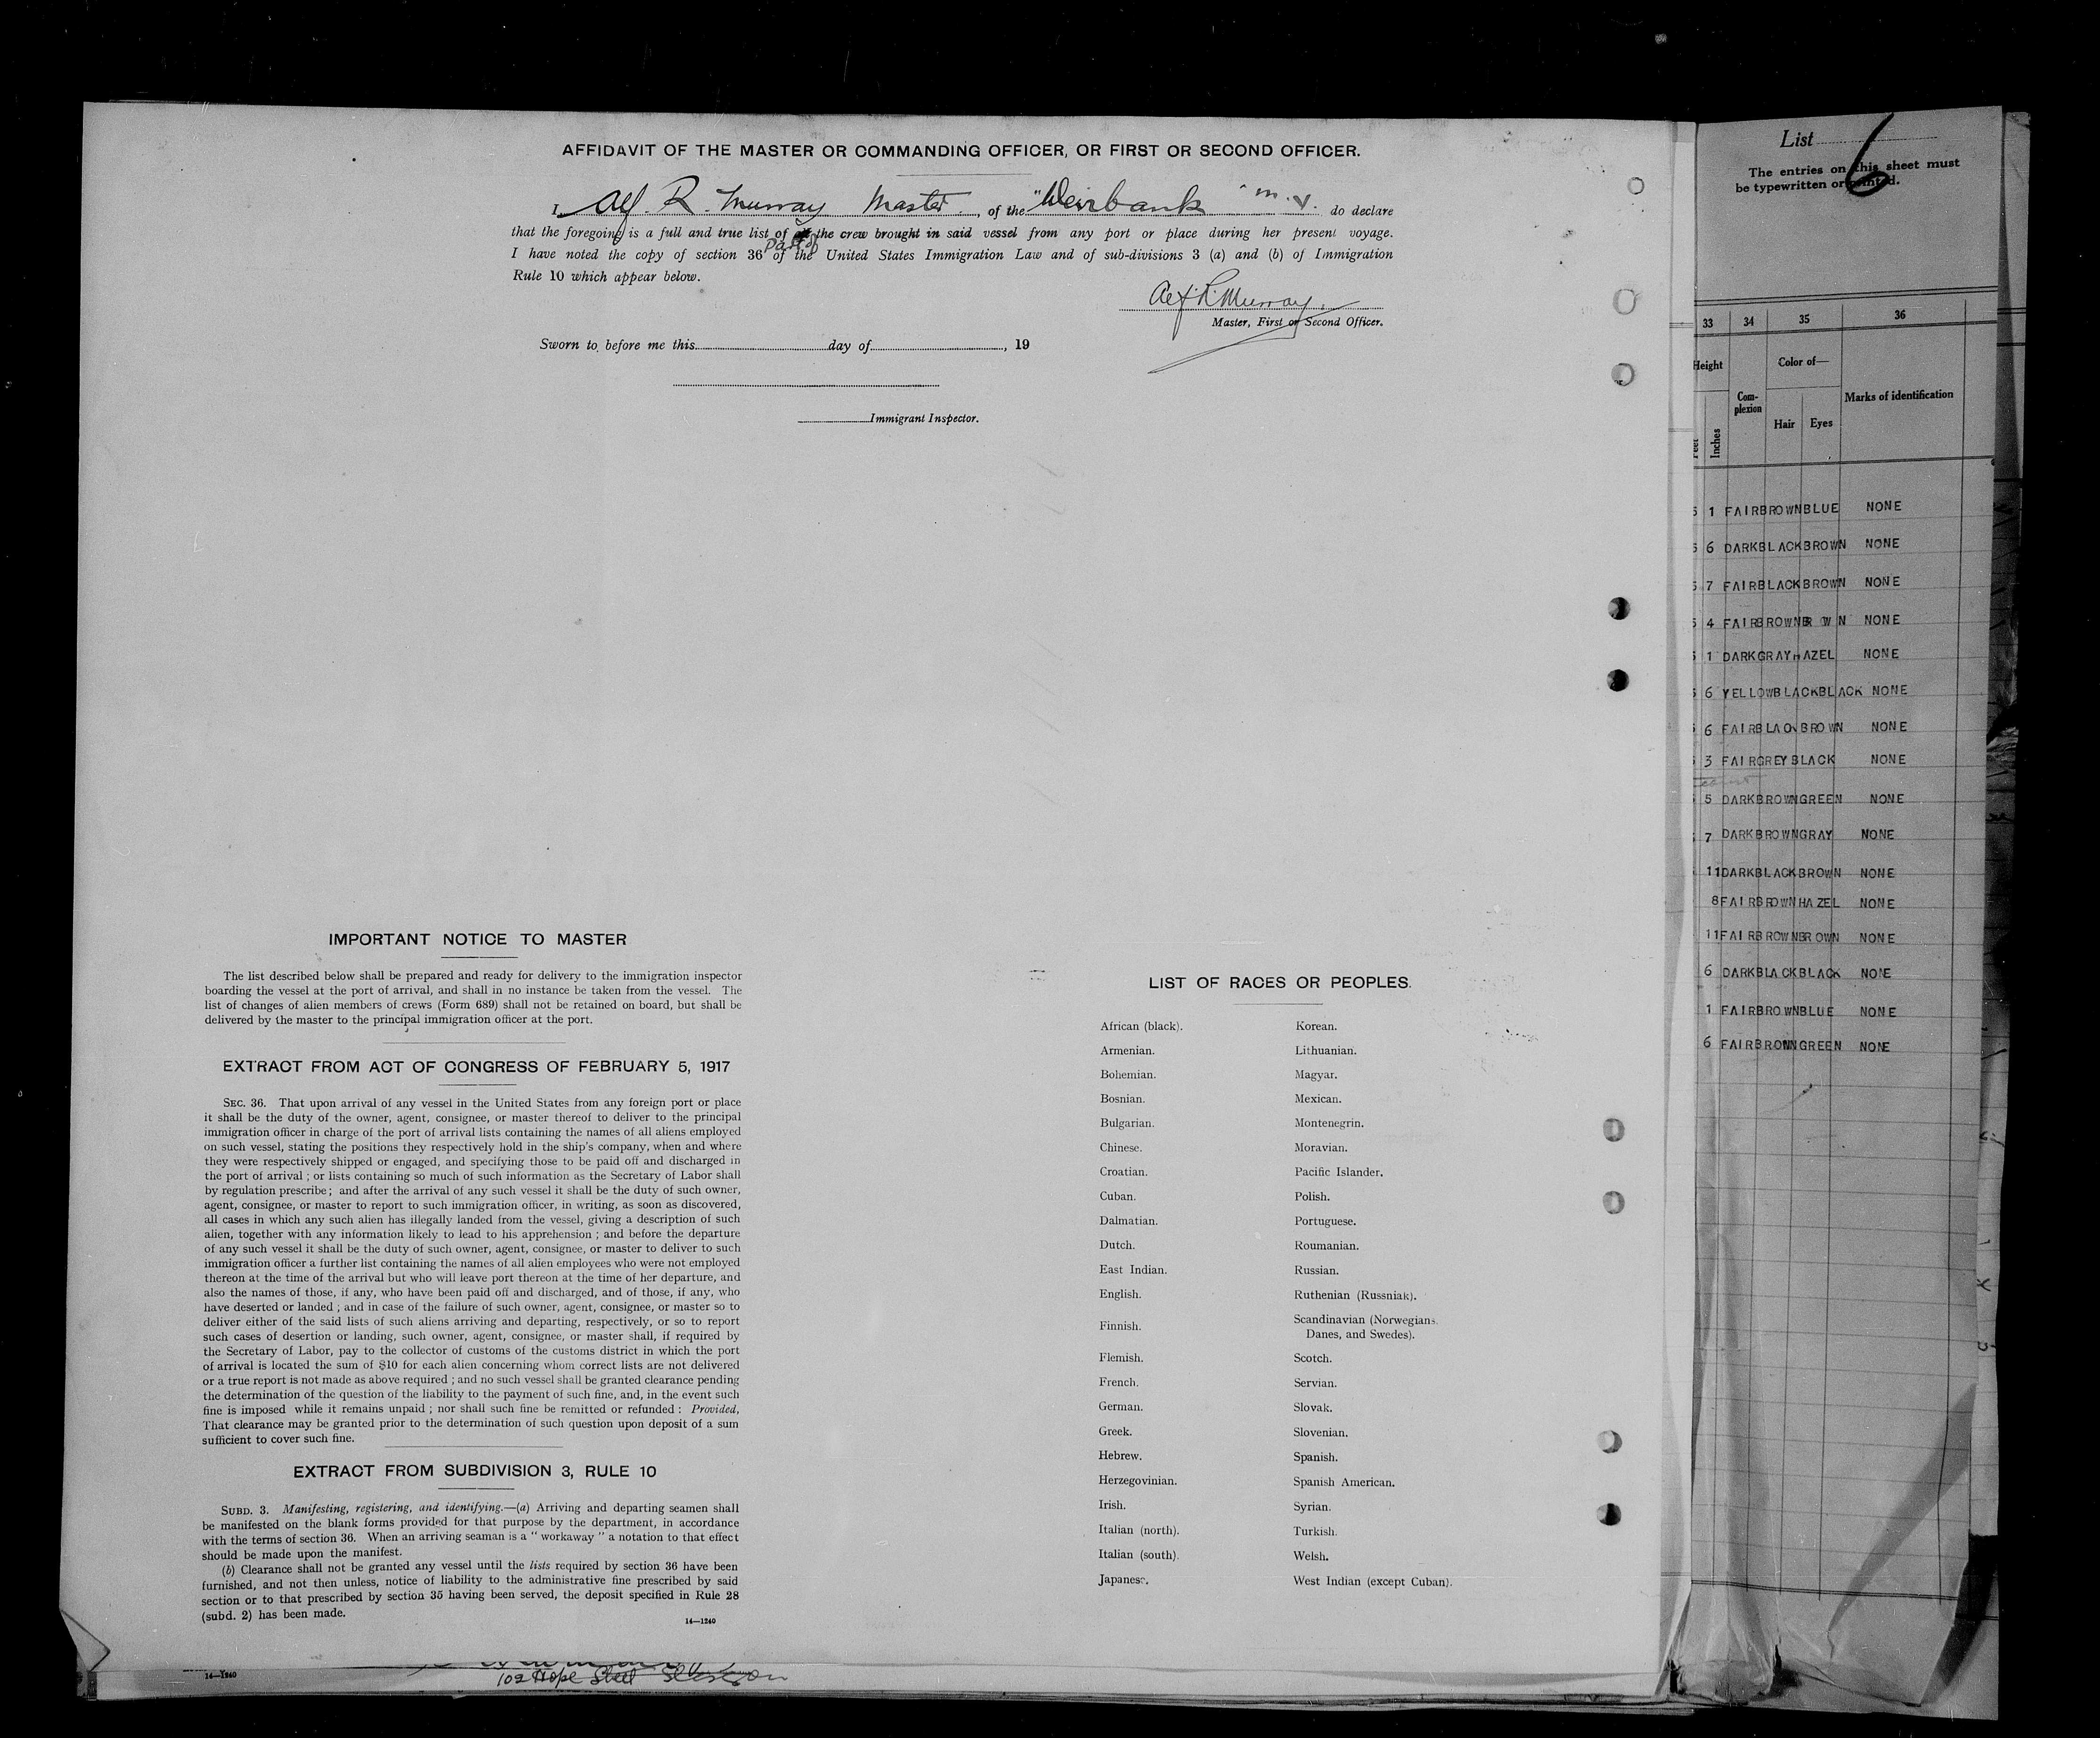 AFFIDAVIT OF THE MASTER OR COMMANDING OFFICER, OR FIRST OR SECOND OFFICER.
I, Alf. R. Murray Master, of the "Weirbank" m.v. do declare
that the foregoing is a full and true list of the crew brought in said vessel from any port or place during her present voyage.
part of
I have noted the copy of section 36 of the United States Immigration Law and of sub-divisions 3 (a) and (b) of Immigration
Rule 10 which appear below.
Alf. R. Murray.
Master, First or Second Officer.
Sworn to before me this day of , 19
Immigrant Inspector.
IMPORTANT NOTICE TO MASTER
The list described below shall be prepared and ready for delivery to the immigration inspector
boarding the vessel at the port of arrival, and shall in no instance be taken from the vessel. The
list of changes of alien members of crews (Form 689) shall not be retained on board, but shall be
delivered by the master to the principal immigration officer at the port.
EXTRACT FROM ACT OF CONGRESS OF FEBRUARY 5, 1917
SEC. 36. That upon arrival of any vessel in the United States from any foreign port or place
it shall be the duty of the owner, agent, consignee, or master thereof to deliver to the principal
immigration officer in charge of the port of arrival lists containing the names of all aliens employed
on such vessel, stating the positions they respectively hold in the ship's company, when and where
they were respectively shipped or engaged, and specifying those to be paid off and discharged in
the port of arrival; or lists containing so much of such information as the Secretary of Labor shall
by regulation prescribe; and after the arrival of any such vessel it shall be the duty of such owner,
agent, consignee, or master to report to such immigration officer, in writing, as soon as discovered,
all cases in which any such alien has illegally landed from the vessel, giving a description of such
alien, together with any information likely to lead to his apprehension; and before the departure
of any such vessel it shall be the duty of such owner, agent, consignee, or master to deliver to such
immigration officer a further list containing the names of all alien employees who were not employed
thereon at the time of the arrival but who will leave port thereon at the time of her departure, and
also the names of those, if any, who have been paid off and discharged, and of those, if any, who
have deserted or landed; and in case of the failure of such owner, agent, consignee, or master so to
deliver either of the said lists of such aliens arriving and departing, respectively, or so to report
such cases of desertion or landing, such owner, agent, consignee, or master shall, if required by
the Secretary of Labor, pay to the collector of customs of the customs district in which the port
of arrival is located the sum of $10 for each alien concerning whom correct lists are not delivered
or a true report is not made as above required; and no such vessel shall be granted clearance pending
the determination of the question of the liability to the payment of such fine, and, in the event such
fine is imposed while it remains unpaid; nor shall such fine be remitted or refunded: Provided,
That clearance may be granted prior to the determination of such question upon deposit of a sum
sufficient to cover such fine.
EXTRACT FROM SUBDIVISION 3, RULE 10
SUBD. 3. Manifesting, registering, and identifying.—(a) Arriving and departing seamen shall
be manifested on the blank forms provided for that purpose by the department, in accordance
with the terms of section 36. When an arriving seaman is a "workaway" a notation to that effect
should be made upon the manifest.
(b) Clearance shall not be granted any vessel until the lists required by section 36 have been
furnished, and not then unless, notice of liability to the administrative fine prescribed by said
section or to that prescribed by section 35 having been served, the deposit specified in Rule 28
(subd. 2) has been made.
14—1240
LIST OF RACES OR PEOPLES.
African (black). Korean.
Armenian. Lithuanian.
Bohemian. Magyar.
Bosnian. Mexican.
Bulgarian. Montenegrin.
Chinese. Moravian.
Croatian. Pacific Islander.
Cuban. Polish.
Dalmatian. Portuguese.
Dutch. Roumanian.
East Indian. Russian.
English. Ruthenian (Russniak).
Finnish. Scandinavian (Norwegians,
Danes, and Swedes).
Flemish. Scotch.
French. Servian.
German. Slovak.
Greek. Slovenian.
Hebrew. Spanish.
Herzegovinian. Spanish American.
Irish. Syrian.
Italian (north). Turkish.
Italian (south). Welsh.
Japanese. West Indian (except Cuban).
14—1240
102 Hope Street
List 6
The entries on this sheet must
be typewritten or printed.
33 34 35 36
Height Color of—
Complexion Marks of identification
Hair Eyes
Feet Inches
5 1 FAIR BROWN BLUE NONE
5 6 DARK BLACK BROWN NONE
5 7 FAIR BLACK BROWN NONE
5 4 FAIR BROWN BR WN NONE
5 1 DARK GRAY HAZEL NONE
5 6 YELLOW BLACK BLACK NONE
6 FAIR BLACK BROWN NONE
3 FAIR GREY BLACK NONE
5 DARK BROWN GREEN NONE
7 DARK BROWN GRAY NONE
11 DARK BLACK BROWN NONE
8 FAIR BROWN HAZEL NONE
11 FAIR BROWN BROWN NONE
6 DARK BLACK BLACK NONE
1 FAIR BROWN BLUE NONE
6 FAIR BROWN GREEN NONE